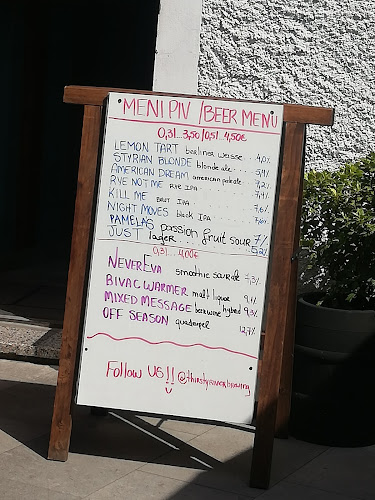 MENI PIV / BEER MENU
0,3l... 3,50 / 0,5l... 4,50€
LEMON TART berliner weisse . 4,0%
STYRIAN BLONDE blonde ale ....
AMERICAN DREAM american pale ale
RYE NOT ME RYE IPA
KILL ME BRUT IPA
NIGHT MOVES black IPA
PAMELAS passion fruit sour 7%
JUST lager ... 5,2%
0,3l ... 4,00€
NEVEREVA smoothie sour ale
BIVAC WARMER malt liquor
MIXED MESSAGE beer wine hybrid 9,3%
OFF SEASON quadrupel 12,7%
Follow US!! @thirstyriverbrewing